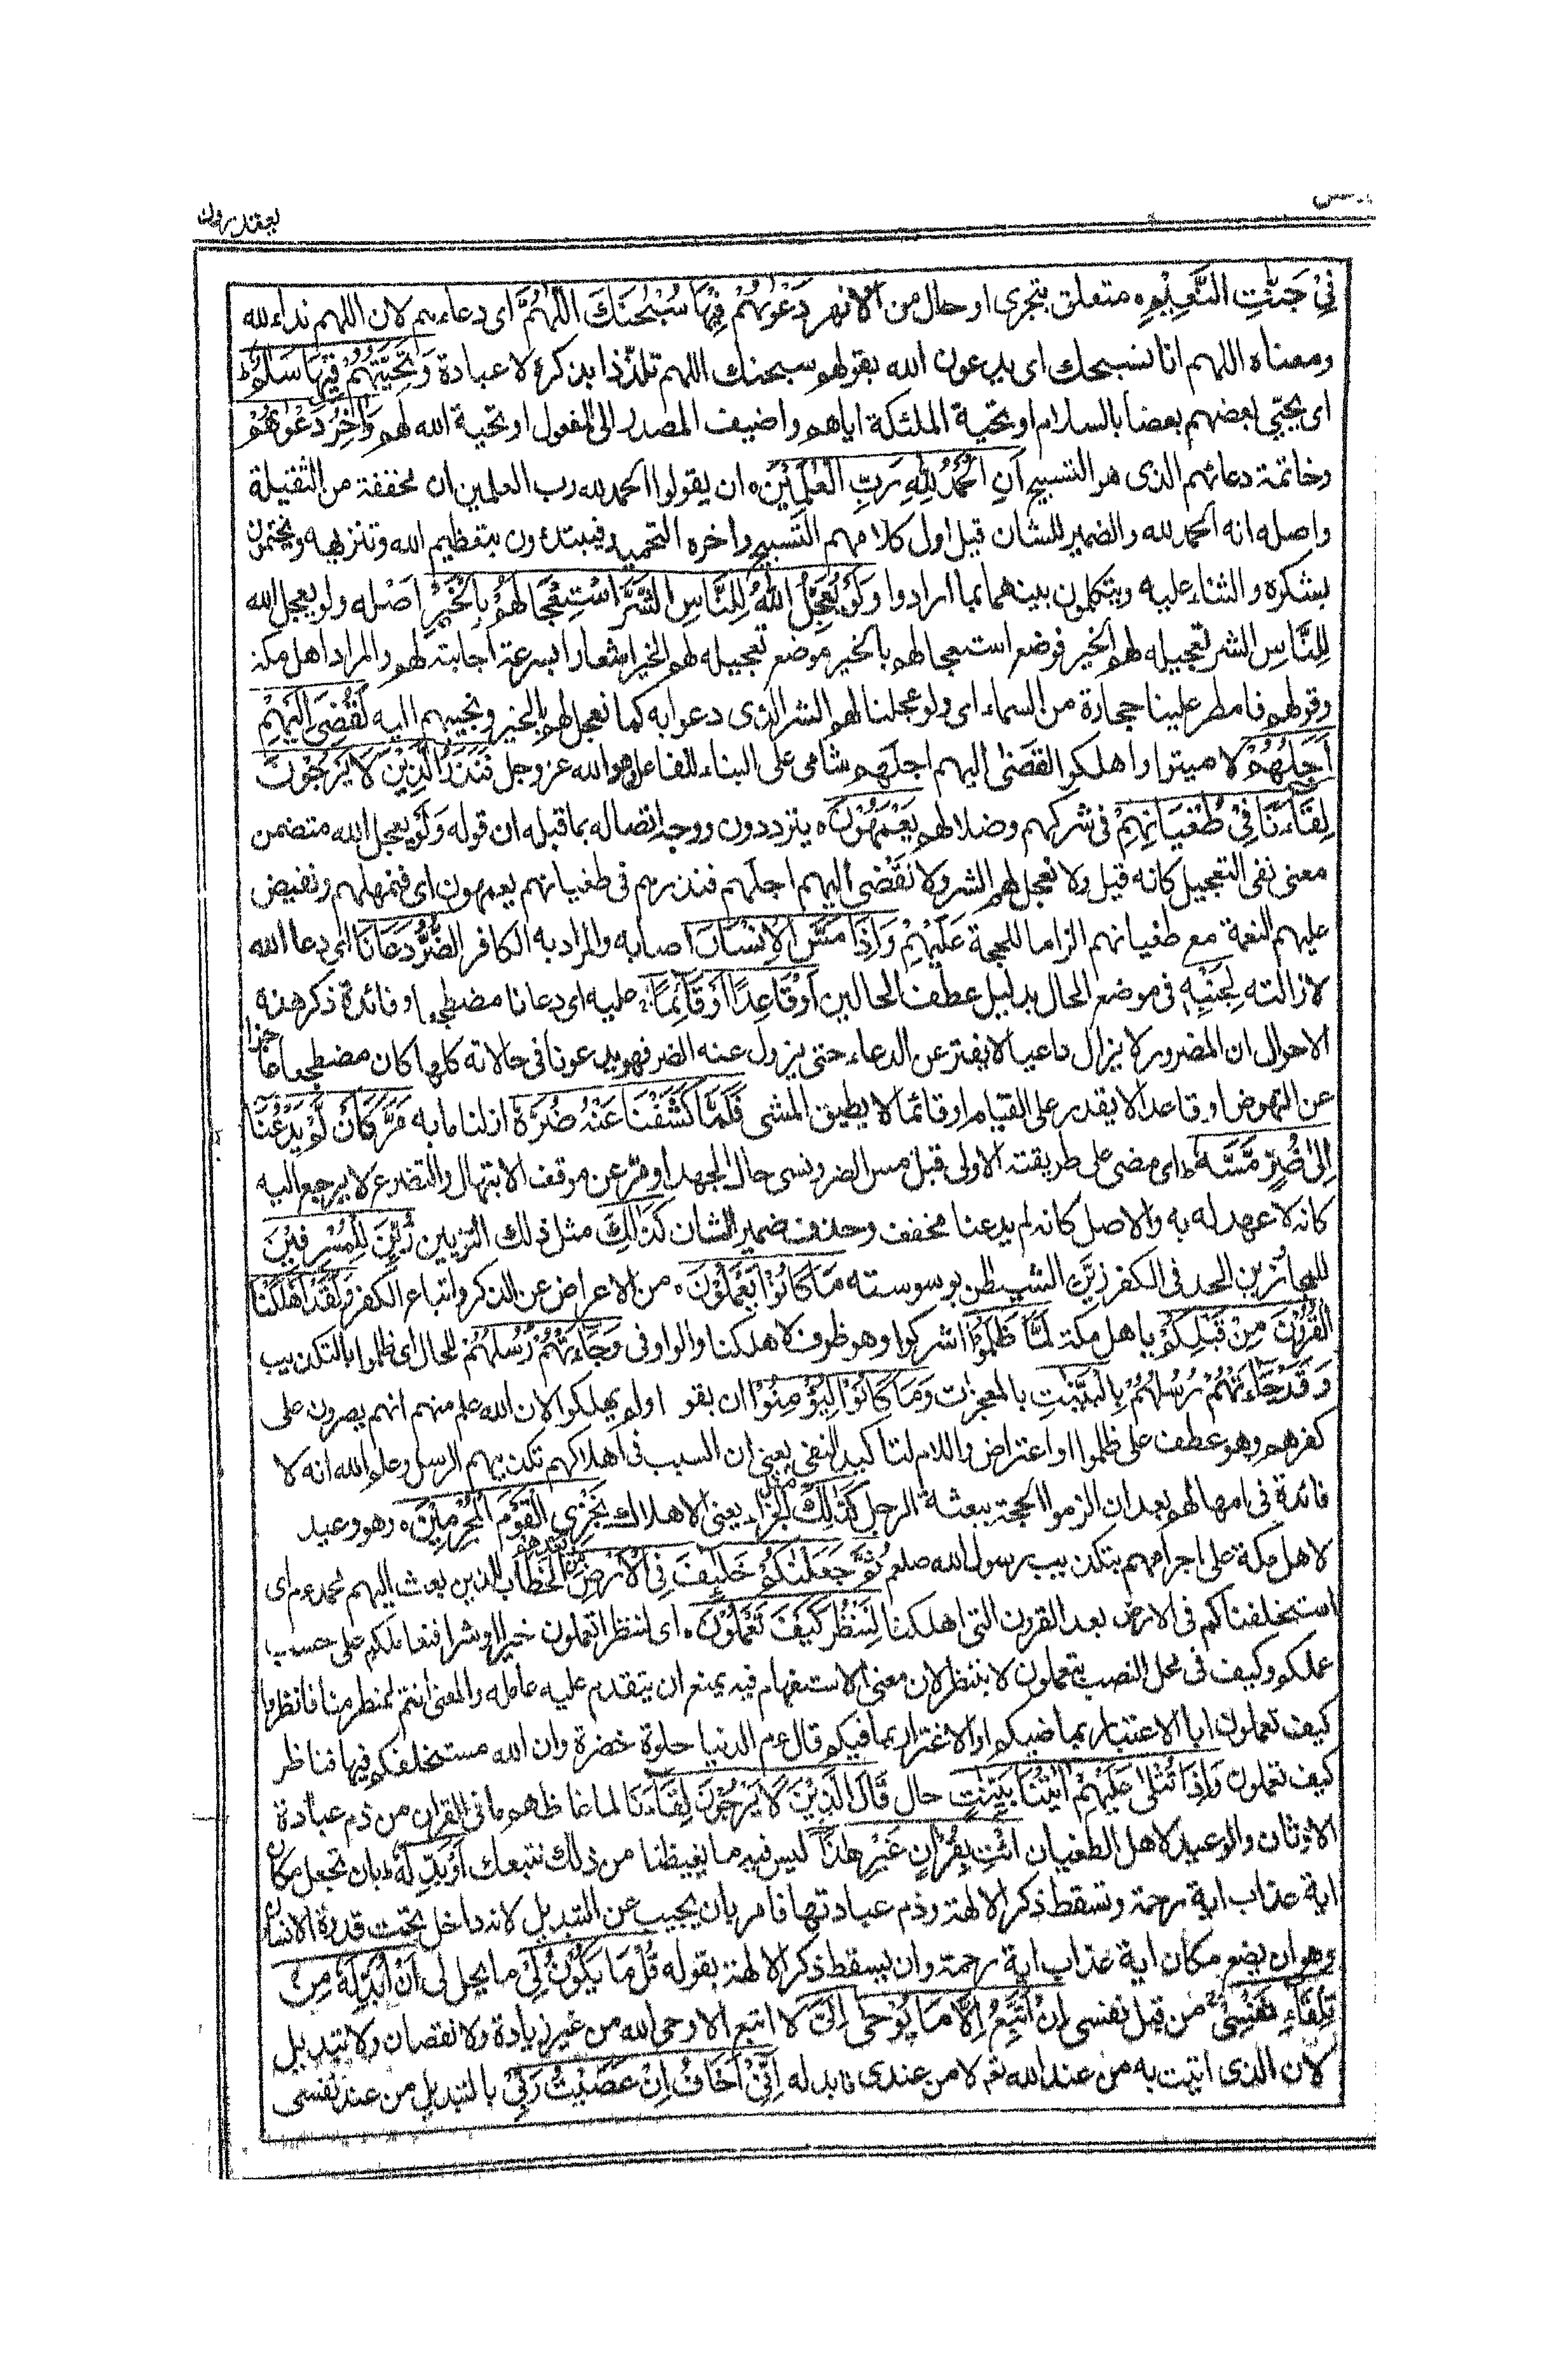 يعتذرون
فِيْ جَنّٰتِ النَّعِيْمِ ه متعلق بتجرى او حال من الانهر دَعْوٰىهُمْ فِيْهَا سُبْحٰنَكَ اللّٰهُمَّ اى دعاءهم لان اللهم نداء لله
ومعناه اللهم انا نسبحك اى يدعون الله بقولهم سبحنك اللهم تلذذا بذكره لا عبادة وَتَحِيَّتُهُمْ فِيْهَا سَلٰمٌ ط
اى يحيّى بعضهم بعضا بالسلام او تحية الملئكة اياهم واضيف المصدر الى المفعول او تحية الله لهم وَاٰخِرُ دَعْوٰىهُمْ
وخاتمة دعائهم الذى هو التسبيح اَنِ الْحَمْدُ لِلّٰهِ رَبِّ الْعٰلَمِيْنَ ه ان يقولوا الحمد لله رب العلمين ان مخففة من الثقيلة
واصله انه الحمد لله والضمير للشان قيل اول كلامهم التسبيح واخره التحميد فيبتدءون بتعظيم الله وتنزيهه ويختمون
بشكره والثناء عليه ويتكلمون بينهما بما ارادوا وَلَوْ يُعَجِّلُ اللّٰهُ لِلنَّاسِ الشَّرَّ اسْتِعْجَالَهُمْ بِالْخَيْرِ اصله ولو يعجل الله
لِلنَّاسِ الشر تعجيله لهم الخير فوضع استعجالهم بالخير موضع تعجيله لهم الخير اشعارا بسرعة اجابته لهم والمراد اهل مكة
وقولهم فامطر علينا حجارة من السماء اى ولو عجلنا لهم الشر الذى دعوا به كما نعجل لهم بالخير ونجيبهم اليه لَقُضِيَ اِلَيْهِمْ
اَجَلُهُمْ لاميتوا واهلكوا لقضى اليهم اجلهم شامى على البناء للفاعل وهو الله عز وجل فَنَذَرُ الَّذِيْنَ لَا يَرْجُوْنَ
لِقَآءَنَا فِيْ طُغْيَانِهِمْ فى شركهم وضلالهم يَعْمَهُوْنَ ه يترددون ووجه اتصاله بما قبله ان قوله ولو يعجل الله متضمن
معنى نفى التعجيل كانه قيل ولا نعجل لهم الشر ولا نقضى اليهم اجلهم فنذرهم فى طغيانهم يعمهون اى فنمهلهم ونفيض
عليهم النعمة مع طغيانهم الزاما للحجة عليهم وَاِذَا مَسَّ الْاِنْسَانَ اصابه والمراد به الكافر الضُّرُّ دَعَانَا اى دعا الله
لازالته لِجَنْبِهٖ فى موضع الحال بدليل عطف الحالين اَوْ قَاعِدًا اَوْ قَآئِمًا عليه اى دعانا مضطجعا وفائدة ذكر هذه
الاحوال ان المضرور لا يزال داعيا لا يفتر عن الدعاء حتى يزول عنه الضر فهو يدعونا فى حالاته كلها كان مضطجعا عاجزا
عن النهوض او قاعدا لا يقدر على القيام او قائما لا يطيق المشى فَلَمَّا كَشَفْنَا عَنْهُ ضُرَّهٗ ازلنا ما به مَرَّ كَاَنْ لَّمْ يَدْعُنَآ
اِلٰى ضُرٍّ مَّسَّهٗ ط اى مضى على طريقته الاولى قبل مس الضر ونسى حال الجهد او مر عن موقف الابتهال والتضرع لا يرجع اليه
كانه لا عهد له به والاصل كانه لم يدعنا مخفف وحذف ضمير الشان كَذٰلِكَ مثل ذلك التزيين زُيِّنَ لِلْمُسْرِفِيْنَ
للمجاوزين الحد فى الكفر زين الشيطن بوسوسته مَا كَانُوْا يَعْمَلُوْنَ ه من الاعراض عن الذكر واتباع الكفر وَلَقَدْ اَهْلَكْنَا
الْقُرُوْنَ مِنْ قَبْلِكُمْ يا هل مكة لَمَّا ظَلَمُوْا اشركوا وهو ظرف لاهلكنا والواو فى وَجَآءَتْهُمْ رُسُلُهُمْ للحال اى ظلموا بالتكذيب
وَقَدْ جَآءَتْهُمْ رُسُلُهُمْ بِالْبَيِّنٰتِ بالمعجزات وَمَا كَانُوْا لِيُؤْمِنُوْا ان بقو اولم يهلكوا لان الله علم منهم انهم يصرون على
كفرهم وهو عطف على ظلموا او اعتراض واللام لتاكيد النفى يعنى ان السبب فى اهلاكهم تكذيبهم الرسل وعلم الله انه لا
فائدة فى امهالهم بعد ان الزموا الحجة ببعثة الرجل كَذٰلِكَ مثل الجزاء يعنى الاهلاك نَجْزِي الْقَوْمَ الْمُجْرِمِيْنَ ه وهو وعيد
لاهل مكة على اجرامهم بتكذيب رسول الله صلعم ثُمَّ جَعَلْنٰكُمْ خَلٰٓئِفَ فِي الْاَرْضِ مِنْۢ بَعْدِهِمْ الخطاب للذين بعث اليهم محمد عم اى
استخلفناكم فى الارض بعد القرون التى اهلكنا لِنَنْظُرَ كَيْفَ تَعْمَلُوْنَ ه اى لننظر اتعملون خيرا او شرا فنعاملكم على حسب
عملكم وكيف فى محل النصب بتعملون لا بننظر لان معنى الاستفهام فيه يمنع ان يتقدم عليه عامله والمعنى انتم بمنظر منا فانظروا
كيف تعملون ابا لاعتبار بماضيكم او الاغترار بما فيكم قال عم الدنيا حلوة خضرة وان الله مستخلفكم فيها فناظر
كيف تعملون وَاِذَا تُتْلٰى عَلَيْهِمْ اٰيٰتُنَا بَيِّنٰتٍ حال قَالَ الَّذِيْنَ لَا يَرْجُوْنَ لِقَآءَنَا لما غاظهم ما فى القران من ذم عبادة
الاوثان والوعيد لاهل الطغيان ائْتِ بِقُرْاٰنٍ غَيْرِ هٰذَآ ليس فيه ما يغيظنا من ذلك نتبعك اَوْ بَدِّلْهُ ط بان تجعل مكان
اية عذاب اية رحمة وتسقط ذكر الالهة وذم عبادتها فامر بان يجيب عن التبديل لانه داخل تحت قدرة الانسان
وهو ان يضع مكان اية عذاب اية رحمة وان يسقط ذكر الالهة بقوله قُلْ مَا يَكُوْنُ لِيْ ما يحل لى اَنْ اُبَدِّلَهٗ مِنْ
تِلْقَآئِ نَفْسِيْ من قبل نفسى اِنْ اَتَّبِعُ اِلَّا مَا يُوْحٰى اِلَيَّ لا اتبع الا وحى الله من غير زيادة ولا نقصان ولا تبديل
لان الذى اتيت به من عند الله ثم لا من عندى فابدله اِنِّيْ اَخَافُ اِنْ عَصَيْتُ رَبِّيْ بالتبديل من عند نفسى